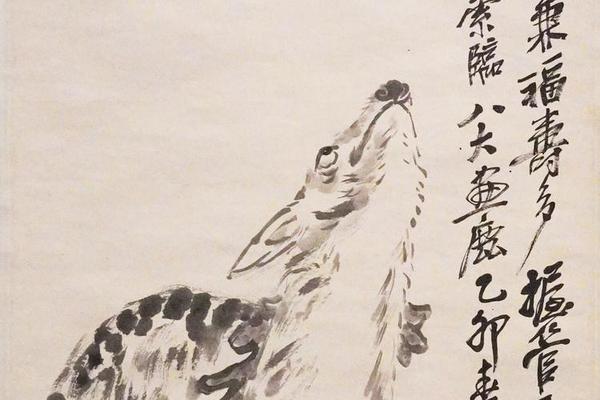 兼福壽多握管
索臨八大畫鹿乙卯春